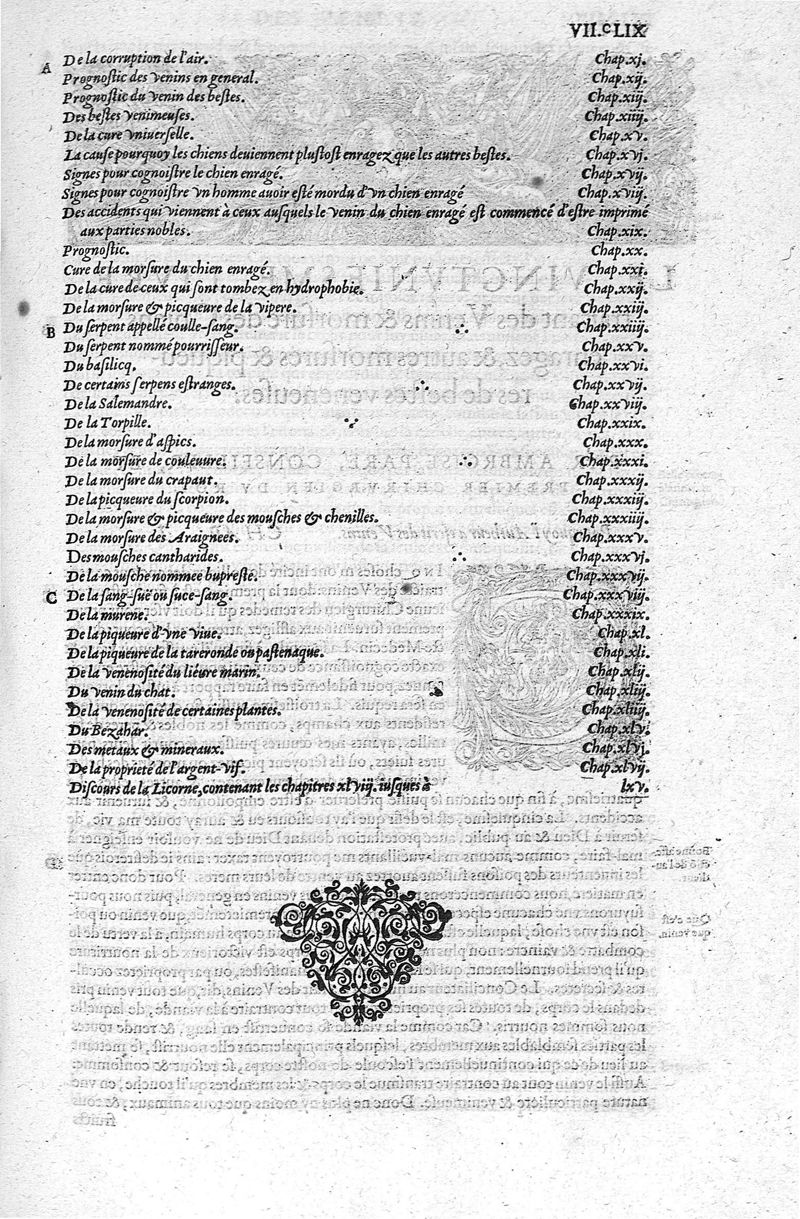 VII.cLIX
A
De la corruption de l'air. Chap.xj.
Prognostic des venins en general. Chap.xij.
Prognostic du venin des bestes. Chap.xiij.
Des bestes venimeuses. Chap.xiiij.
De la cure vniuerselle. Chap.xv.
La cause pourquoy les chiens deuiennent plustost enragez que les autres bestes. Chap.xvj.
Signes pour cognoistre le chien enragé. Chap.xvij.
Signes pour cognoistre vn homme auoir esté mordu d'vn chien enragé Chap.xviij.
Des accidents qui viennent à ceux ausquels le venin du chien enragé est commencé d'estre imprimé
aux parties nobles. Chap.xix.
Prognostic. Chap.xx.
Cure de la morsure du chien enragé. Chap.xxi.
De la cure de ceux qui sont tombez en hydrophobie. Chap.xxij.
De la morsure & picqueure de la vipere. Chap.xxiij.
B Du serpent appellé coulle-sang. Chap.xxiiij.
Du serpent nommé pourrisseur. Chap.xxv.
Du basilicq. Chap.xxvi.
De certains serpens estranges. Chap.xxvij.
De la Salemandre. Chap.xxviij.
De la Torpille. Chap.xxix.
De la morsure d'aspics. Chap.xxx.
De la morsure de couleuure. Chap.xxxi.
De la morsure du crapaut. Chap.xxxij.
De la picqueure du scorpion. Chap.xxxiij.
De la morsure & picqueure des mousches & chenilles. Chap.xxxiiij.
De la morsure des Araignees. Chap.xxxv.
Des mousches cantharides. Chap.xxxvj.
De la mousche nommee bupreste. Chap.xxxvij.
C De la sang-suë ou suce-sang. Chap.xxxviij.
De la murene. Chap.xxxix.
De la piqueure d'vne viue. Chap.xl.
De la piqueure de la tareronde ou pastenaque. Chap.xli.
De la venenosité du lieure marin. Chap.xlij.
Du venin du chat. Chap.xliij.
De la venenosité de certaines plantes. Chap.xliiij.
Du Bezahar. Chap.xlv.
Des metaux & mineraux. Chap.xlvj.
De la proprieté de l'argent-vif. Chap.xlvij.
Discours de la Licorne, contenant les chapitres xlviij. iusques à lxv.